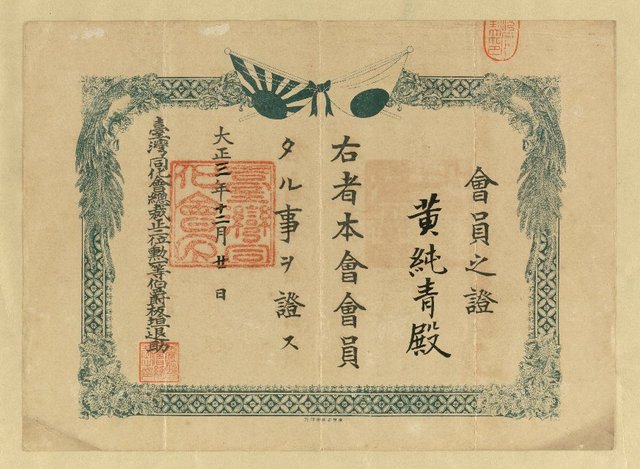 會員之證
黃純青殿
右者本會會員
タル事ヲ證ス
大正三年十二月廿日
臺灣同化會總裁正二位勳一等伯爵板垣退助